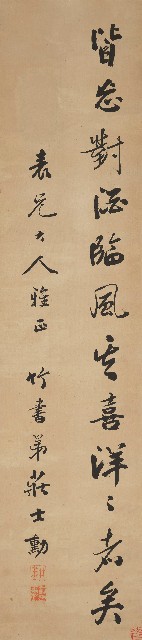 皆忘對酒臨風其喜洋〻者矣
表兄大人雅正 竹書弟莊士勳